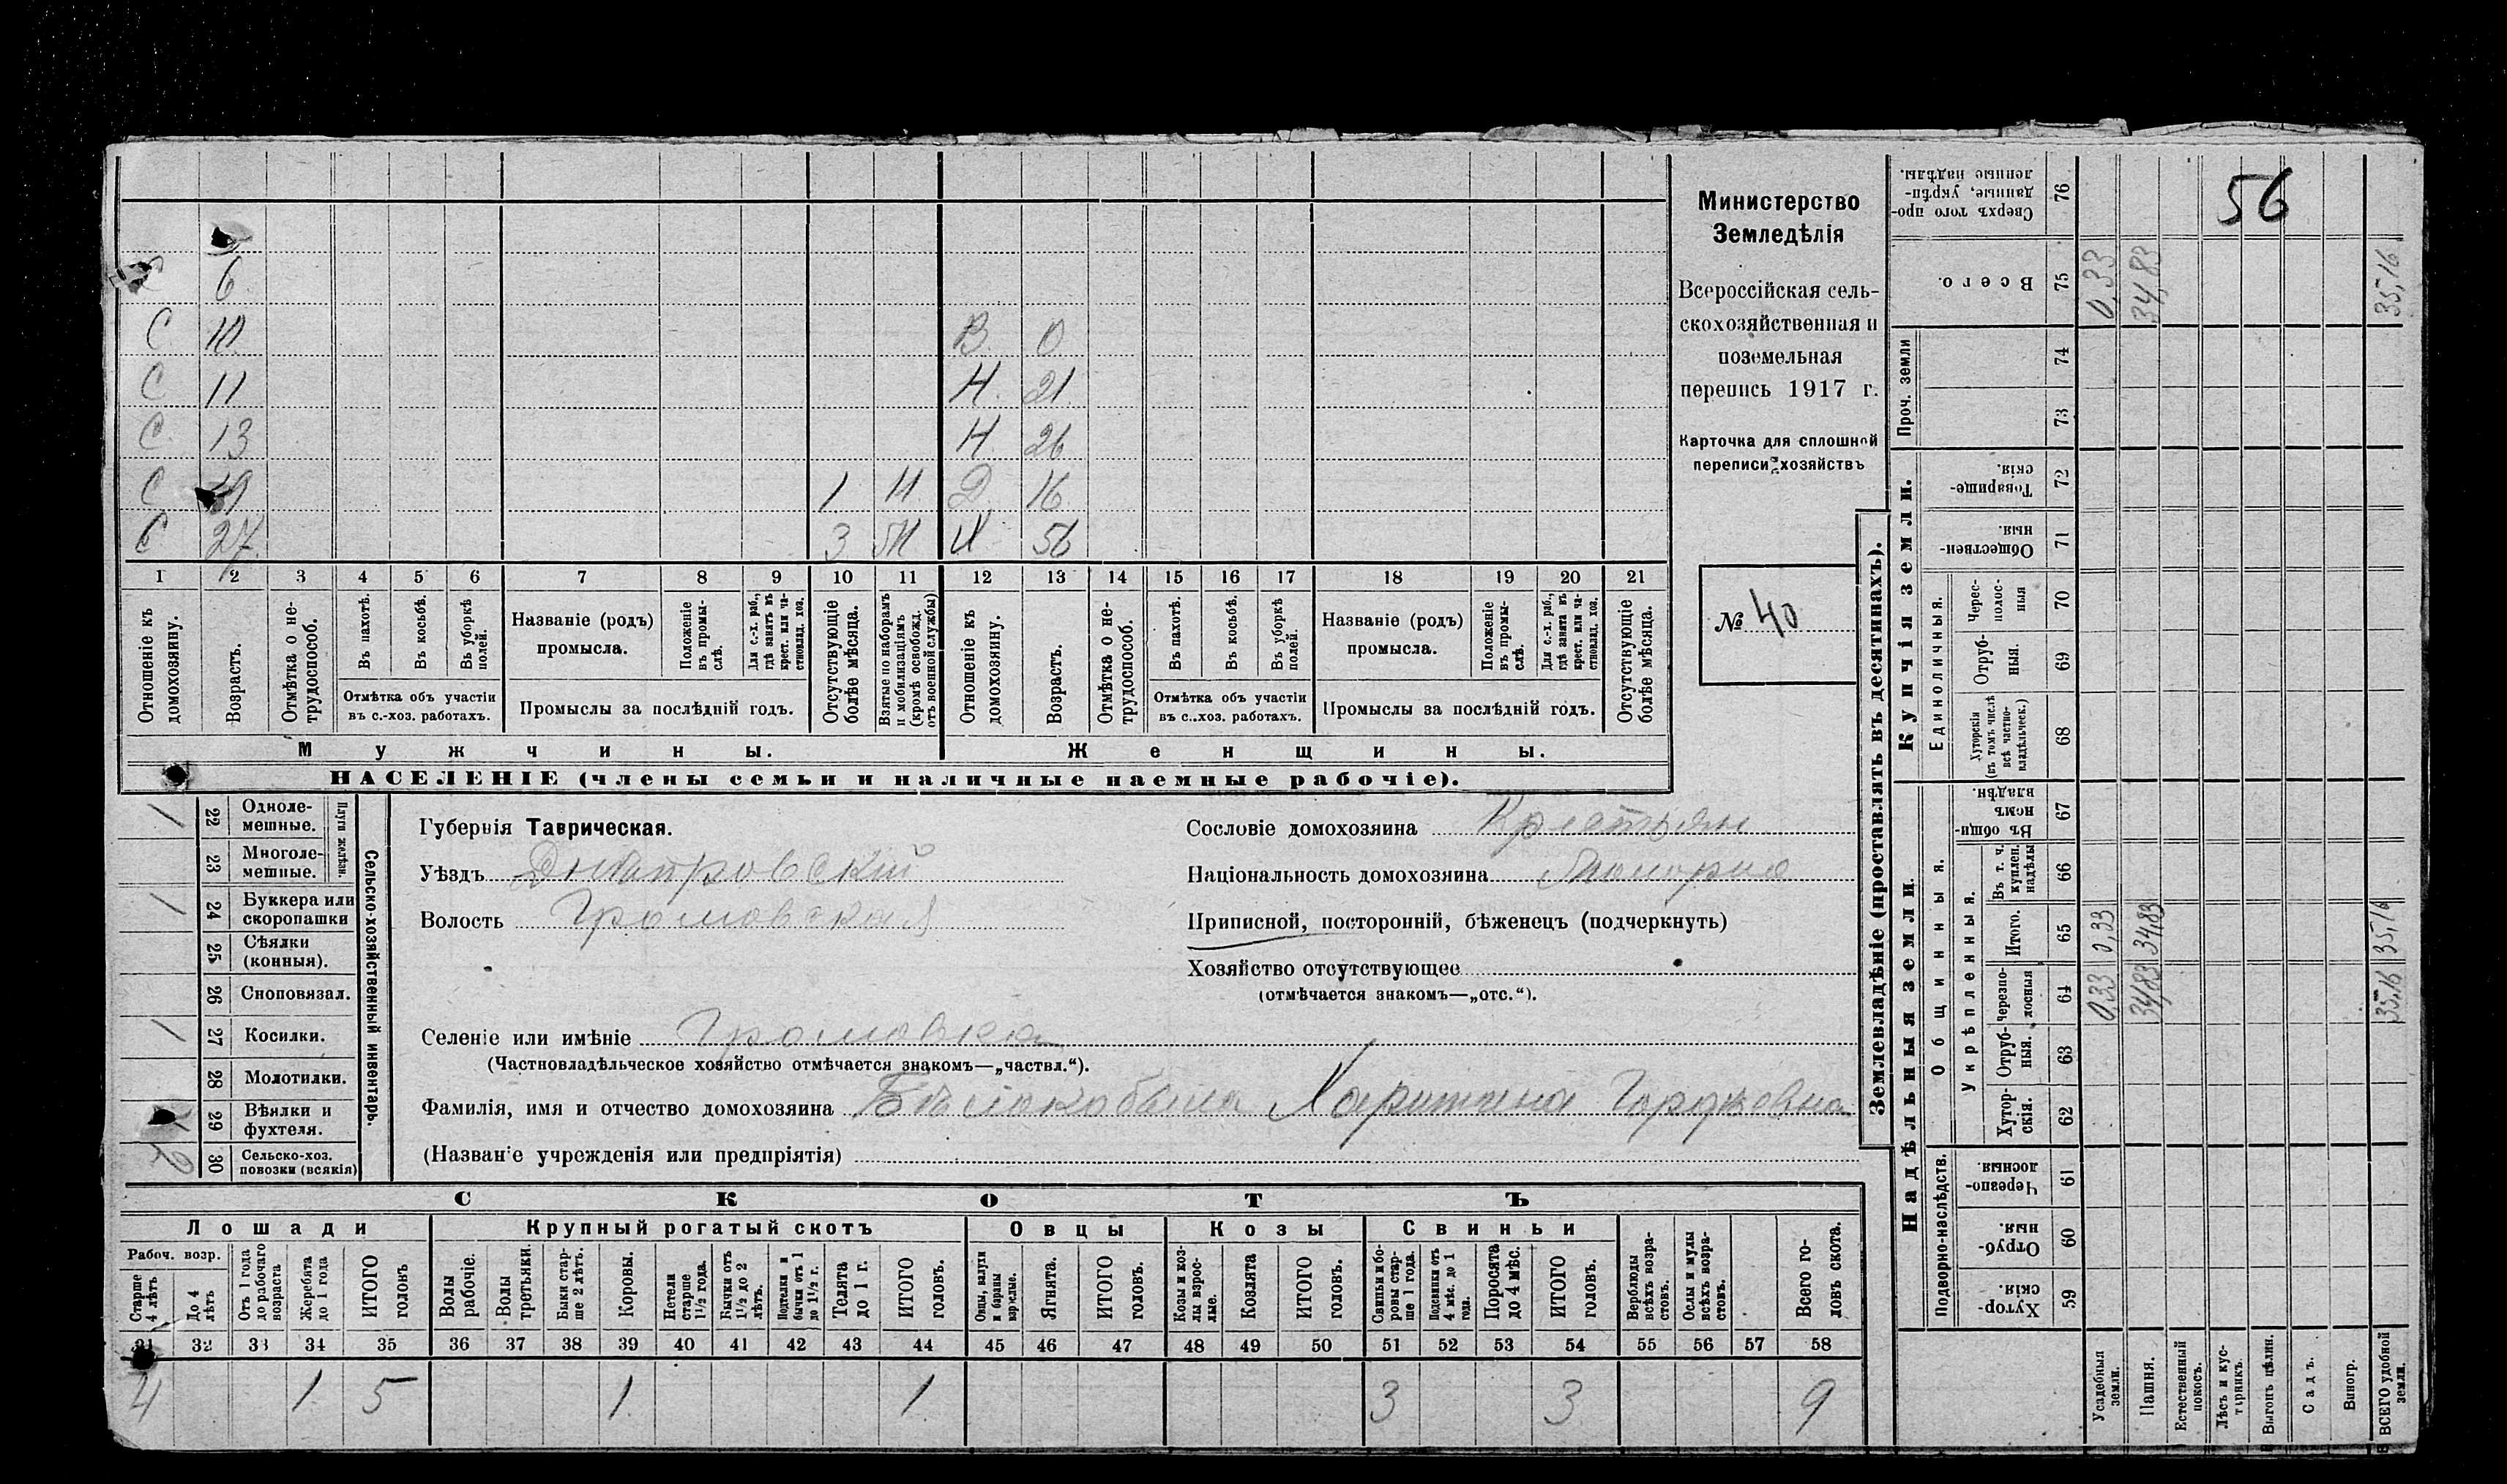 56
Министерство
Земледѣлія
Всероссійская сель-
скохозяйственная и
поземельная
перепись 1917 г.
Карточка для сплошной
переписи хозяйствъ
№ 40
С 6
С 10 В 0
С 11 Н 21
С 13 Н 26
С 1 Н Д 16
С 27 3 56
1 2 3 4 5 6 7 8 9 10 11 12 13 14 15 16 17 18 19 20 21
Отношеніе къ домохозяину.
Возрастъ.
Отмѣтка о не-трудоспособ.
Въ пахотѣ.
Въ косьбѣ.
Въ уборкѣ полей.
Отмѣтка объ участіи въ с.-хоз. работахъ.
Названіе (родъ) промысла.
Положеніе въ промы-слѣ.
Для с.-х. раб., гдѣ занятъ въ крест. или ча-стновлад. хоз.
Промыслы за послѣдній годъ.
Отсутствующіе болѣе мѣсяца.
Взятые по наборамъ и мобилизаціямъ (кромѣ освобожд. отъ военной службы)
Отношеніе къ домохозяину.
Возрастъ.
Отмѣтка о не-трудоспособ.
Въ пахотѣ.
Въ косьбѣ.
Въ уборкѣ полей.
Отмѣтка объ участіи въ с.-хоз. работахъ.
Названіе (родъ) промысла.
Положеніе въ промы-слѣ.
Для с.-х. раб., гдѣ занята въ крест. или ча-стновлад. хоз.
Промыслы за послѣдній годъ.
Отсутствующіе болѣе мѣсяца.
Мужчины. Женщины.
НАСЕЛЕНІЕ (члены семьи и наличные наемные рабочіе).
Сельско-хозяйственный инвентарь.
Плуги желѣзн.
1 22 Одноле-мешные.
23 Многоле-мешные.
1 24 Буккера или скоропашки
25 Сѣялки (конныя).
26 Сноповязал.
1 27 Косилки.
28 Молотилки.
29 Вѣялки и фухтеля.
30 Сельско-хоз. повозки (всякія)
Губернія Таврическая.
Уѣздъ Днѣпровскій
Волость Громовская
Селеніе или имѣніе Громовка
(Частновладѣльческое хозяйство отмѣчается знакомъ—„частвл.“).
Фамилія, имя и отчество домохозяина Бѣлокобыла Харитина Гордѣевна
(Названіе учрежденія или предпріятія)
Сословіе домохозяина Крестьян
Національность домохозяина
Приписной, посторонній, бѣженецъ (подчеркнуть)
Хозяйство отсутствующее
(отмѣчается знакомъ—„отс.“).
СКОТЪ
Лошади Крупный рогатый скотъ Овцы Козы Свиньи
Рабоч. возр.
Старше 4 лѣтъ
До 4 лѣтъ
Отъ 1 года до рабочаго возраста
Жеребята до 1 года
ИТОГО головъ
Волы рабочіе.
Волы третьяки.
Быки стар-ше 2 лѣтъ.
Коровы.
Нетели старше 1½ года.
Бычки отъ 1½ до 2 лѣтъ.
Подтелки и бычки отъ 1 до 1½ г.
Телята до 1 г.
ИТОГО головъ.
Овцы, валухи и бараны взрослые.
Ягнята.
ИТОГО головъ.
Козы и коз-лы взрос-лые.
Козлята
ИТОГО головъ.
Свиньи и бо-ровы стар-ше 1 года.
Подсвинки отъ 4 мѣс. до 1 года.
Поросята до 4 мѣс.
ИТОГО головъ.
Верблюды всѣхъ возра-стовъ.
Ослы и мулы всѣхъ возра-стовъ.
Всего го-ловъ скота.
31 32 33 34 35 36 37 38 39 40 41 42 43 44 45 46 47 48 49 50 51 52 53 54 55 56 57 58
4 1 5 1 1 3 3 9
Землевладѣніе (проставлять въ десятинахъ).
Надѣльныя земли.
Купчія земли.
Проч. земли
Подворно-наслѣдств.
Общинныя.
Укрѣпленныя.
Единоличныя.
Хутор-скія. 59
Отруб-ныя. 60
Черезпо-лосныя. 61
Хутор-скія. 62
Отруб-ныя. 63
Черезпо-лосныя 64 0,33 34,83 35,16
Итого. 65 0,33 34,83 35,16
Въ т. ч. куплен. надѣлы 66
Въ общин-номъ владѣн. 67
Хуторскія (въ томъ числѣ всѣ частно-владѣльческ.) 68
Отруб-ныя. 69
Черес-полос-ныя 70
Обществен-ныя. 71
Товарище-скія. 72
73
74
Всего. 75 0,33 34,83 35,16
Сверхъ того про-данные, укрѣп-ленные надѣлы. 76
Усадебныя земли.
Пашня.
Естественный покосъ.
Лѣсъ и кус-тарникъ.
Выгонъ цѣлин.
Садъ.
Виногр.
ВСЕГО удобной земли.